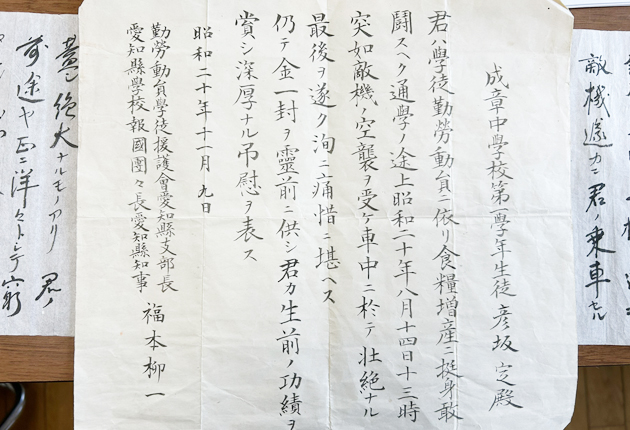 敵機遂カニ君ノ乗車セル
成章中学校第一学年生徒彦坂定殿
君ハ學徒勤勞動員ニ依リ食糧増産ニ挺身敢
闘スヘク通學ノ途上昭和二十年八月十四日十三時
突如敵機ノ空襲ヲ受ケ車中ニ於テ壮絶ナル
最後ヲ遂ク洵ニ痛惜ニ堪ヘス
仍テ金一封ヲ靈前ニ供シ君カ生前ノ功績ヲ
賞シ深厚ナル弔慰ヲ表ス
昭和二十年十一月九日
勤勞動員學徒援護會愛知縣支部長
愛知縣學校報國團々長愛知縣知事
福本柳一
絶大ナルモノアリ 君ノ
前途ヤ正ニ洋々トシテ窮